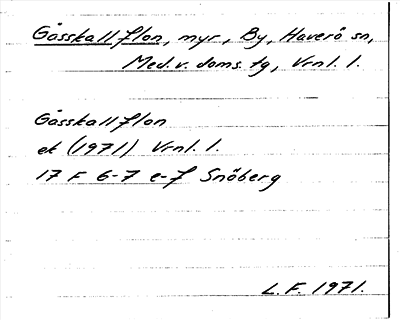 Gåsskallflon, myr, By, Haverö sn,
Med.v. doms. tg, Vrnl. l.
Gåsskallflon
ek (1971) Vrnl. l.
17 F 6-7 e-f Snöberg
L. F. 1971.